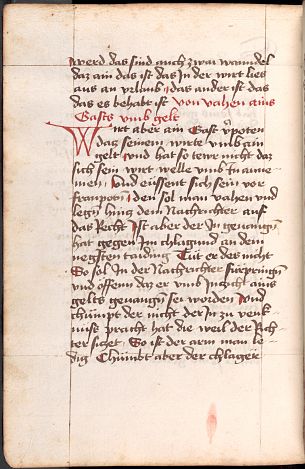 werd das sind auch zwai wanndel
daz ain das ist das In der wirt lies
aus an vrlaub das ander ist das
das es behabt ist von vahen ains
Gasts vmb gelt
Wirt aber ain Gast vpoten
daz seinem wirte vmb ain
gelt vnd hat so tewr nicht daz
sich sein wirt welle vmb In anne
men vnd eüssent sich sein vor
den sol man vahen vnd
hinz dem Nachrichter auf
das Recht Ist aber der In genangen
hat gegen In chlagund an dem
negsten taiding Tut er des nicht
So sol In der Nachrichter fürpringen
vnd offenn daz er vmb ains
gelts geuangen sei worden vnd
chumpt der nicht der In zu venk
nüsse pracht hat die weil der Rich
ter siczet So ist der arm man le
dig Chumbt aber der chlager